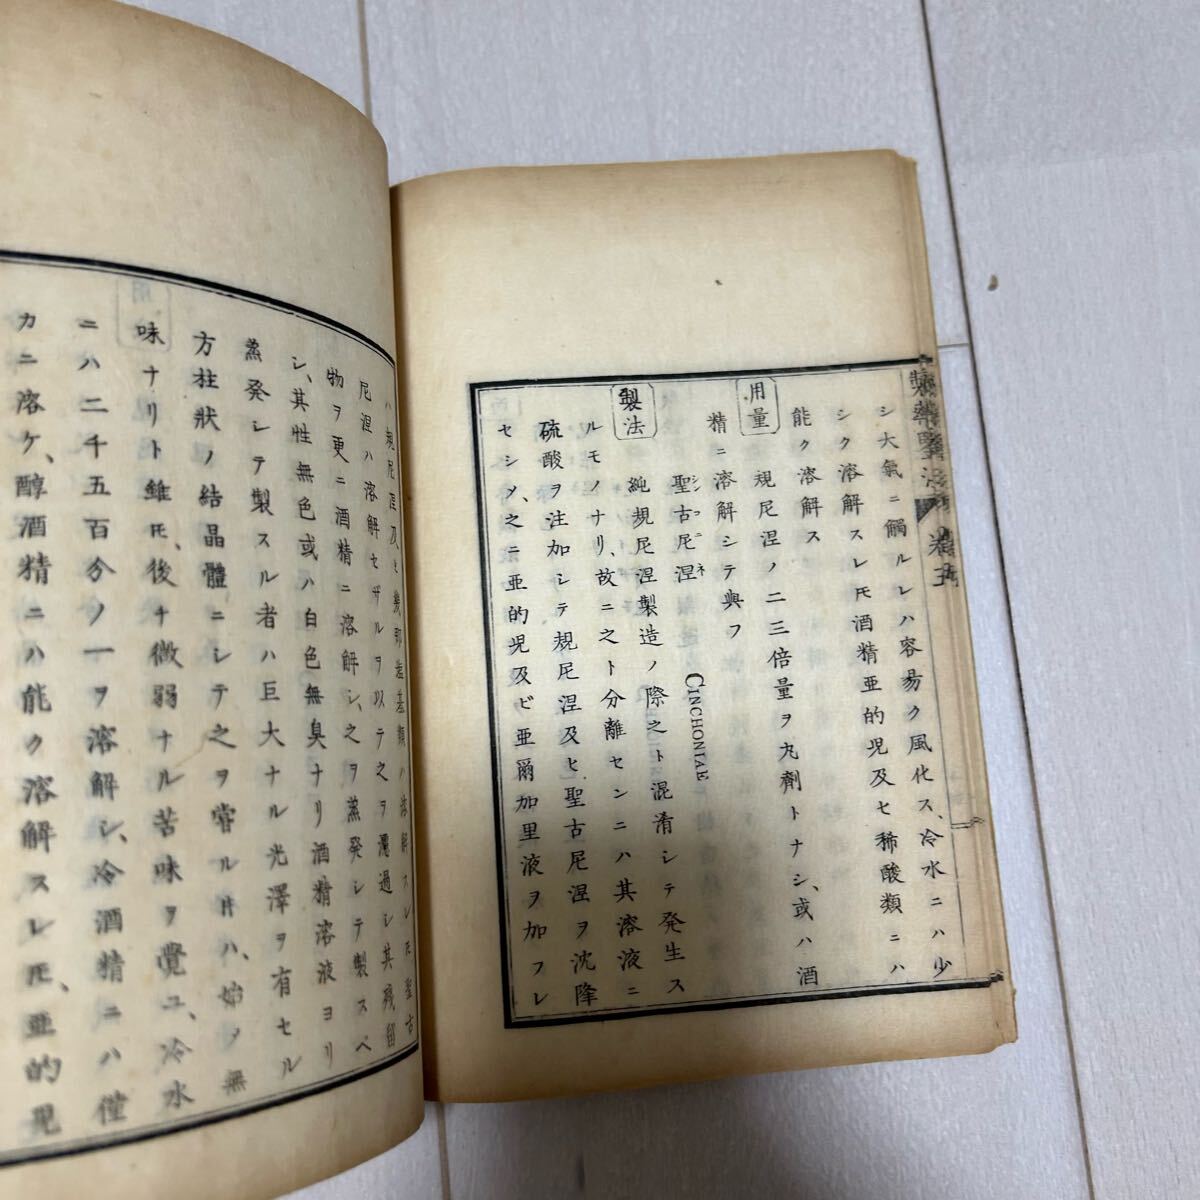 シ大氣ニ觸ルレハ容易ク風化ス、冷水ニハ少
シク溶解スレ𪜈酒精亜的児及セ稀酸類ニハ
能ク溶解ス
用量 規尼涅ノ二三倍量ヲ丸劑トナシ、或ハ酒
精ニ溶解シテ與フ
聖古尼涅 シンコニネ CINCHONIAE
製法 純規尼涅製造ノ際之ト混淆シテ発生ス
ルモノナリ、故ニ之ト分離センニハ其溶液ニ
硫酸ヲ注加シテ規尼涅及ヒ聖古尼涅ヲ沈降
セシメ、之ニ亜的児及ビ亜爾加里液ヲ加フレ
ハ規尼涅及ヒ幾那塩基類ハ溶解スレ𪜈聖古
尼涅ハ溶解セザルヲ以テ之ヲ濾過シ其残留
物ヲ更ニ酒精ニ溶解シ、之ヲ蒸発シテ製スベ
シ、其性無色或ハ白色無臭ナリ酒精溶液ヨリ
蒸発シテ製スル者ハ巨大ナル光澤ヲ有セル
方柱狀ノ結晶體ニシテ之ヲ嘗ル𪜈ハ、始メ無
味ナリト雖𪜈、後チ微弱ナル苦味ヲ覺ユ、冷水
ニハ二千五百分ノ一ヲ溶解シ、冷酒精ニハ僅
カニ溶ケ、醇酒精ニハ能ク溶解スレ𪜈、亜的児